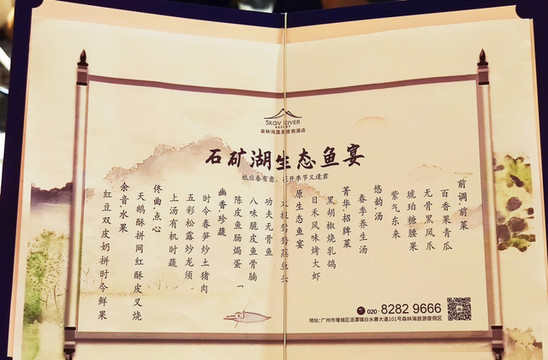 SKOV RIVER
RESORT
森林海温泉度假酒店
石矿湖生态鱼宴
前调·前菜
百香果青瓜
无骨黑凤爪
琥珀糖腰果
紫气东来
悠韵·汤
春季养生汤
菁华·招牌菜
黑胡椒烧乳鸽
日禾风味烤大虾
原生态鱼宴
功夫无骨鱼
八味脆皮鱼骨腩
陈皮鱼肠焗蛋
幽香·珍蔬
时令春笋炒土猪肉
五彩松露炒龙须
上汤有机时蔬
佟曲点心
天鹅酥拼网红酥皮叉烧
余音水果
红豆双皮奶拼时令鲜果
020-8282 9666
地址:广州市增城区派潭镇白水寨大道101号森林海旅游度假区